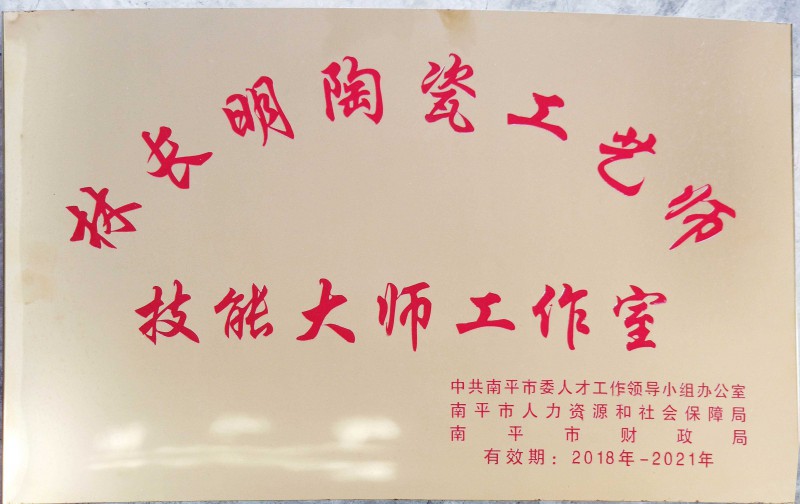 长明陶瓷工艺坊
技能大师工作室
中共南平市委人才工作领导小组办公室
南平市人力资源和社会保障局
南平市财政局
有效期：2018年-2021年